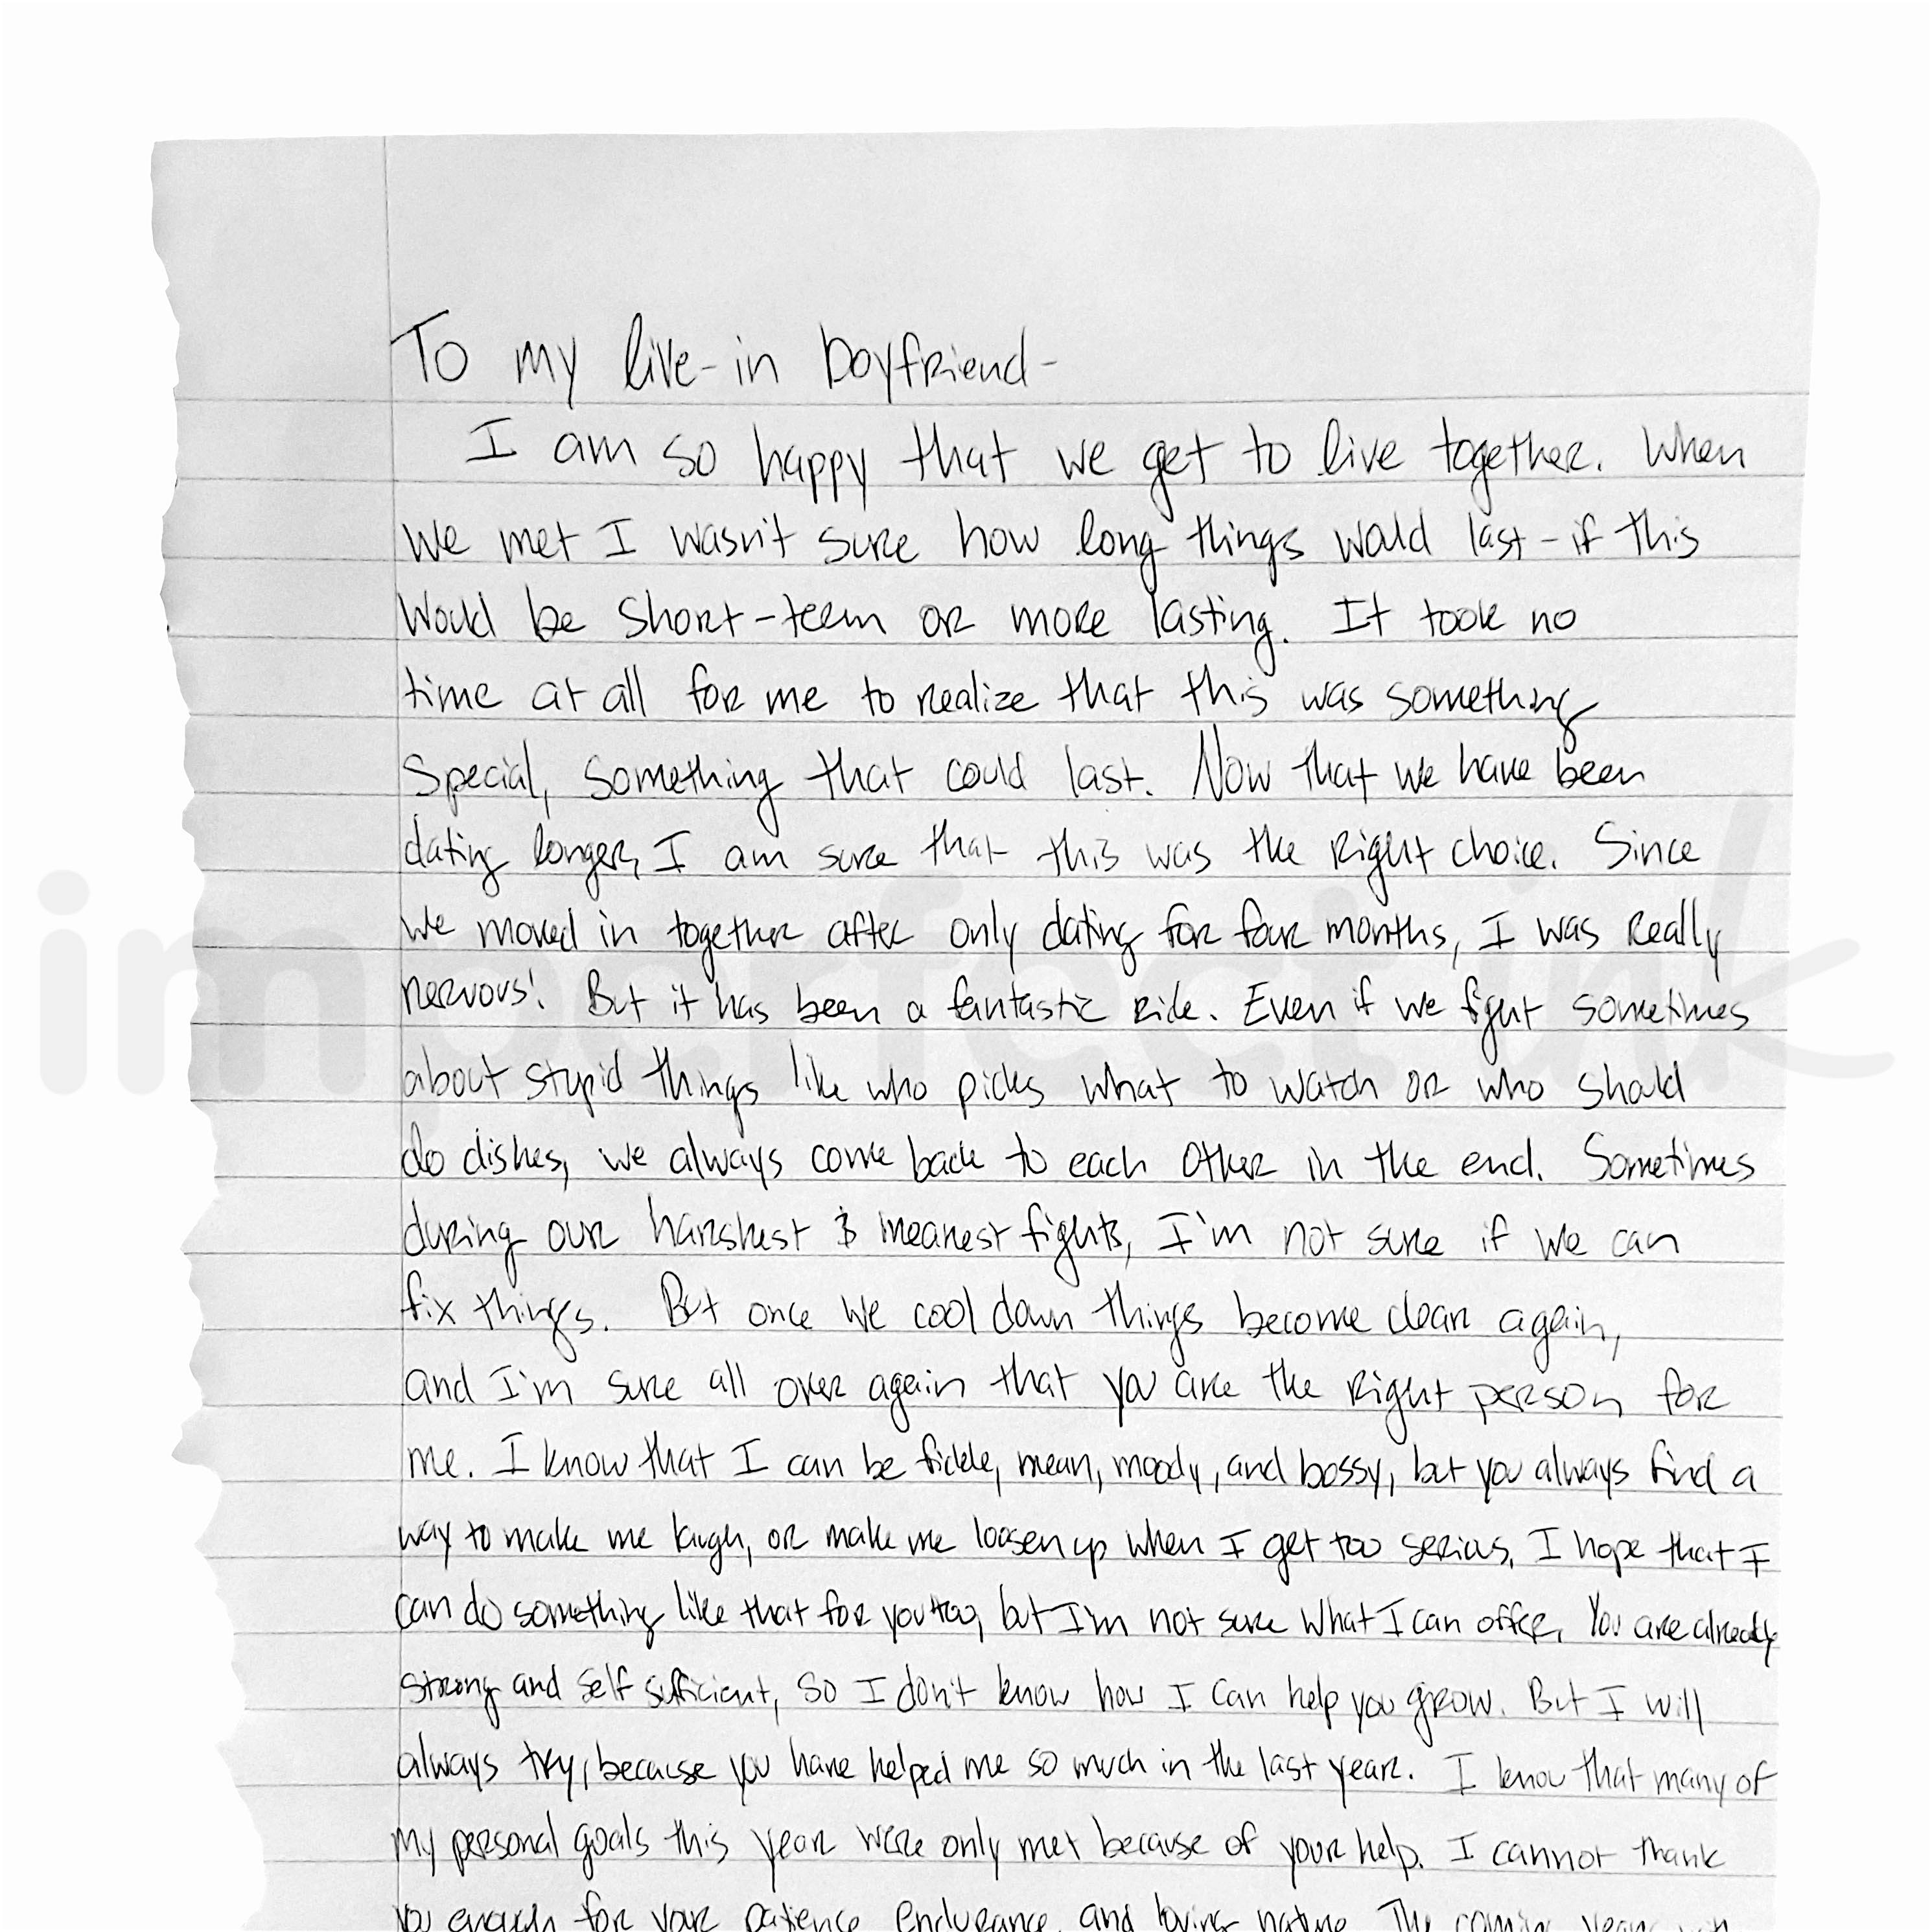 To my live-in boyfriend-
I am so happy that we get to live together. When
we met I wasn't sure how long things would last - if this
would be short-term or more lasting. It took no
time at all for me to realize that this was something
special, something that could last. Now that we have been
dating longer, I am sure that this was the right choice. Since
we moved in together after only dating for four months, I was really
nervous! But it has been a fantastic ride. Even if we fight sometimes
about stupid things like who picks what to watch or who should
do dishes, we always come back to each other in the end. Sometimes
during our harshest & meanest fights, I'm not sure if we can
fix things. But once we cool down things become clear again,
and I'm sure all over again that you are the right person for
me. I know that I can be fickle, mean, moody, and bossy, but you always find a
way to make me laugh, or make me loosen up when I get too serious. I hope that I
can do something like that for you too, but I'm not sure what I can offer. You are already
strong and self sufficient, so I don't know how I can help you grow. But I will
always try, because you have helped me so much in the last year. I know that many of
my personal goals this year were only met because of your help. I cannot thank
you enough for your patience, endurance, and loving nature. The coming years
imperfect ink